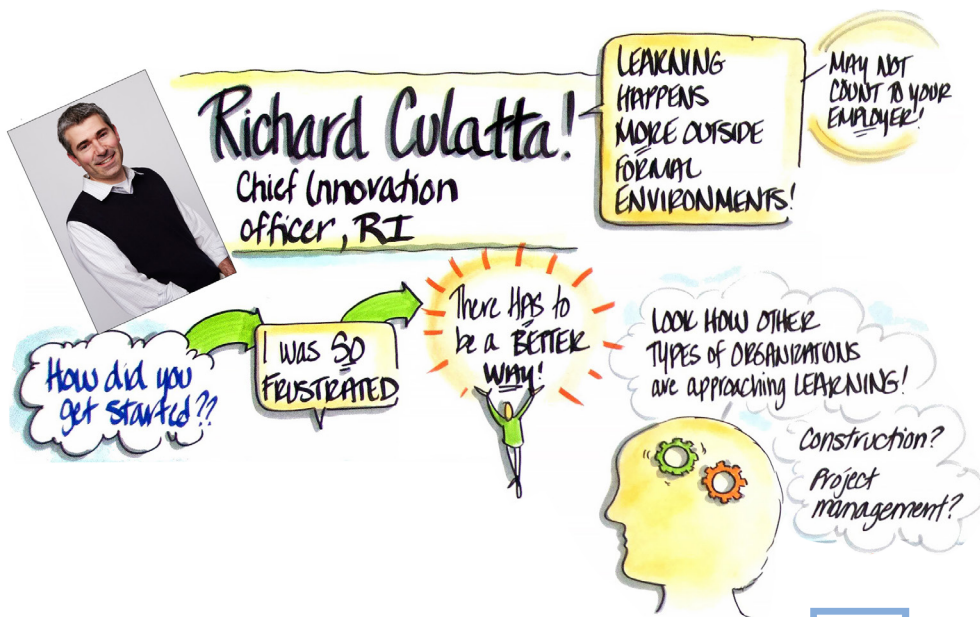 Richard Culatta!
Chief Innovation
officer, RI
LEARNING
HAPPENS
MORE OUTSIDE
FORMAL
ENVIRONMENTS!
MAY NOT
COUNT TO YOUR
EMPLOYER!
How did you
get started??
I was SO
FRUSTRATED
There HAS to
be a BETTER
WAY!
LOOK HOW OTHER
TYPES of ORGANIZATIONS
are approaching LEARNING!
Construction?
Project
management?